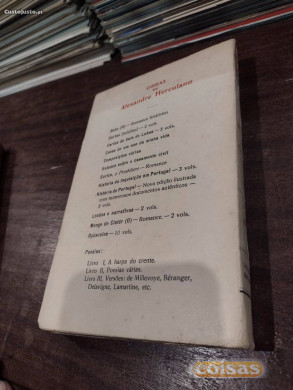 CustoJusto.pt
OBRAS
DE
Alexandre Herculano
Bobo (O) — Romance histórico
Cartas (Inéditas) — 2 vols.
Cartas de Vale de Lobos — 3 vols.
Cenas de um ano da minha vida
Composições várias
Estudos sobre o casamento civil
Eurico, o Presbítero — Romance
História da Inquisição em Portugal — 3 vols.
História de Portugal — Nova edição ilustrada
com numerosos documentos autênticos — 8 vols.
Lendas e narrativas — 2 vols.
Monge de Cister (O) — Romance. — 2 vols.
Opúsculos — 10 vols.
Poesias:
Livro I, A harpa do crente.
Livro II, Poesias várias.
Livro III, Versões: de Millevoye, Béranger,
Delavigne, Lamartine, etc.
coisas